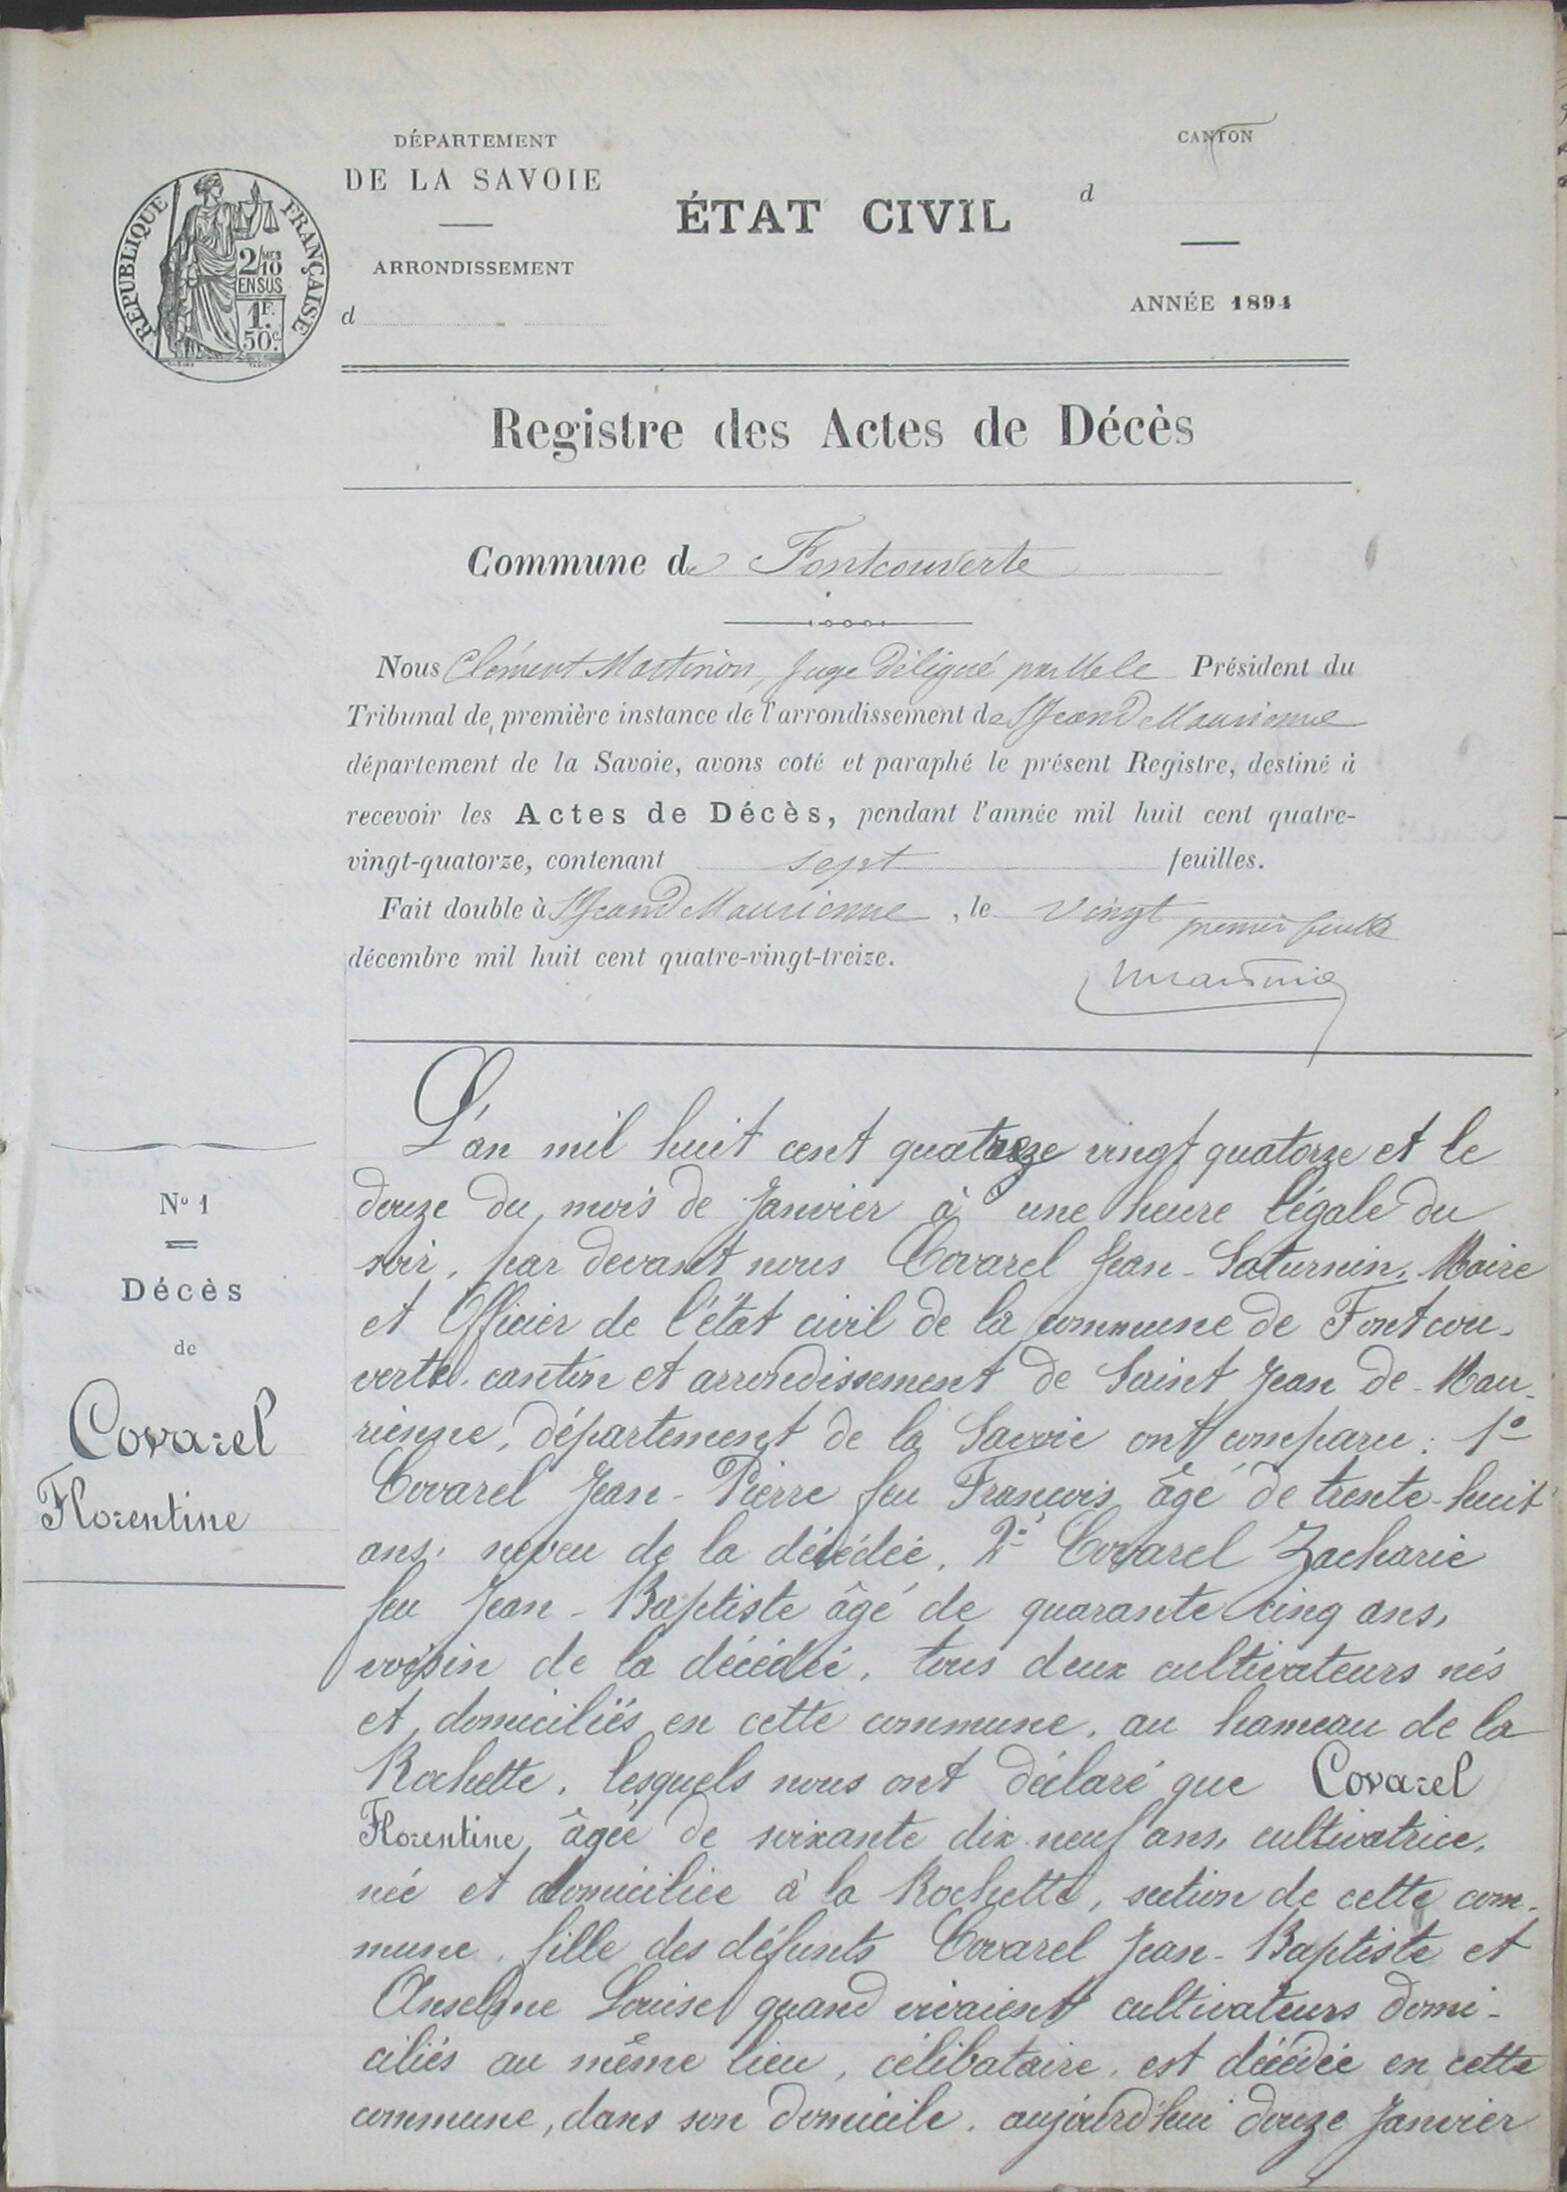 DÉPARTEMENT
DE LA SAVOIE
ARRONDISSEMENT
d
RÉPUBLIQUE FRANÇAISE
2/10 MES
EN SUS
1F.
50c.
ÉTAT CIVIL
CANTON
d
ANNÉE 1894
Registre des Actes de Décès
Commune de Fontcouverte
Nous Clément Martinon, Juge Délégué par Mr le Président du
Tribunal de première instance de l'arrondissement de St Jean de Maurienne
département de la Savoie, avons coté et paraphé le présent Registre, destiné à
recevoir les Actes de Décès, pendant l'année mil huit cent quatre-
vingt-quatorze, contenant sept feuilles.
Fait double à St Jean de Maurienne, le vingt
premier feuille
décembre mil huit cent quatre-vingt-treize.
No 1
Décès
de
Covarel
Florentine
L'an mil huit cent quatre vingt quatorze et le
douze du mois de Janvier à une heure légale du
soir, par devant nous Covarel Jean-Saturnin, Maire
et Officier de l'état civil de la commune de Fontcou-
verte, canton et arrondissement de Saint Jean de Mau-
rienne, département de la Savoie ont comparu : 1o
Covarel Jean-Pierre feu François âgé de trente-huit
ans, neveu de la décédée, 2o Covarel Zacharie
feu Jean-Baptiste âgé de quarante cinq ans,
voisin de la décédée, tous deux cultivateurs nés
et domiciliés en cette commune, au hameau de la
Rochette, lesquels nous ont déclaré que Covarel
Florentine, âgée de soixante dix-neuf ans, cultivatrice,
née et domiciliée à la Rochette, section de cette com-
mune, fille des défunts Covarel Jean-Baptiste et
Anselme Louise quand vivaient cultivateurs domi-
ciliés au même lieu, célibataire, est décédée en cette
commune, dans son domicile, aujourd'hui douze Janvier